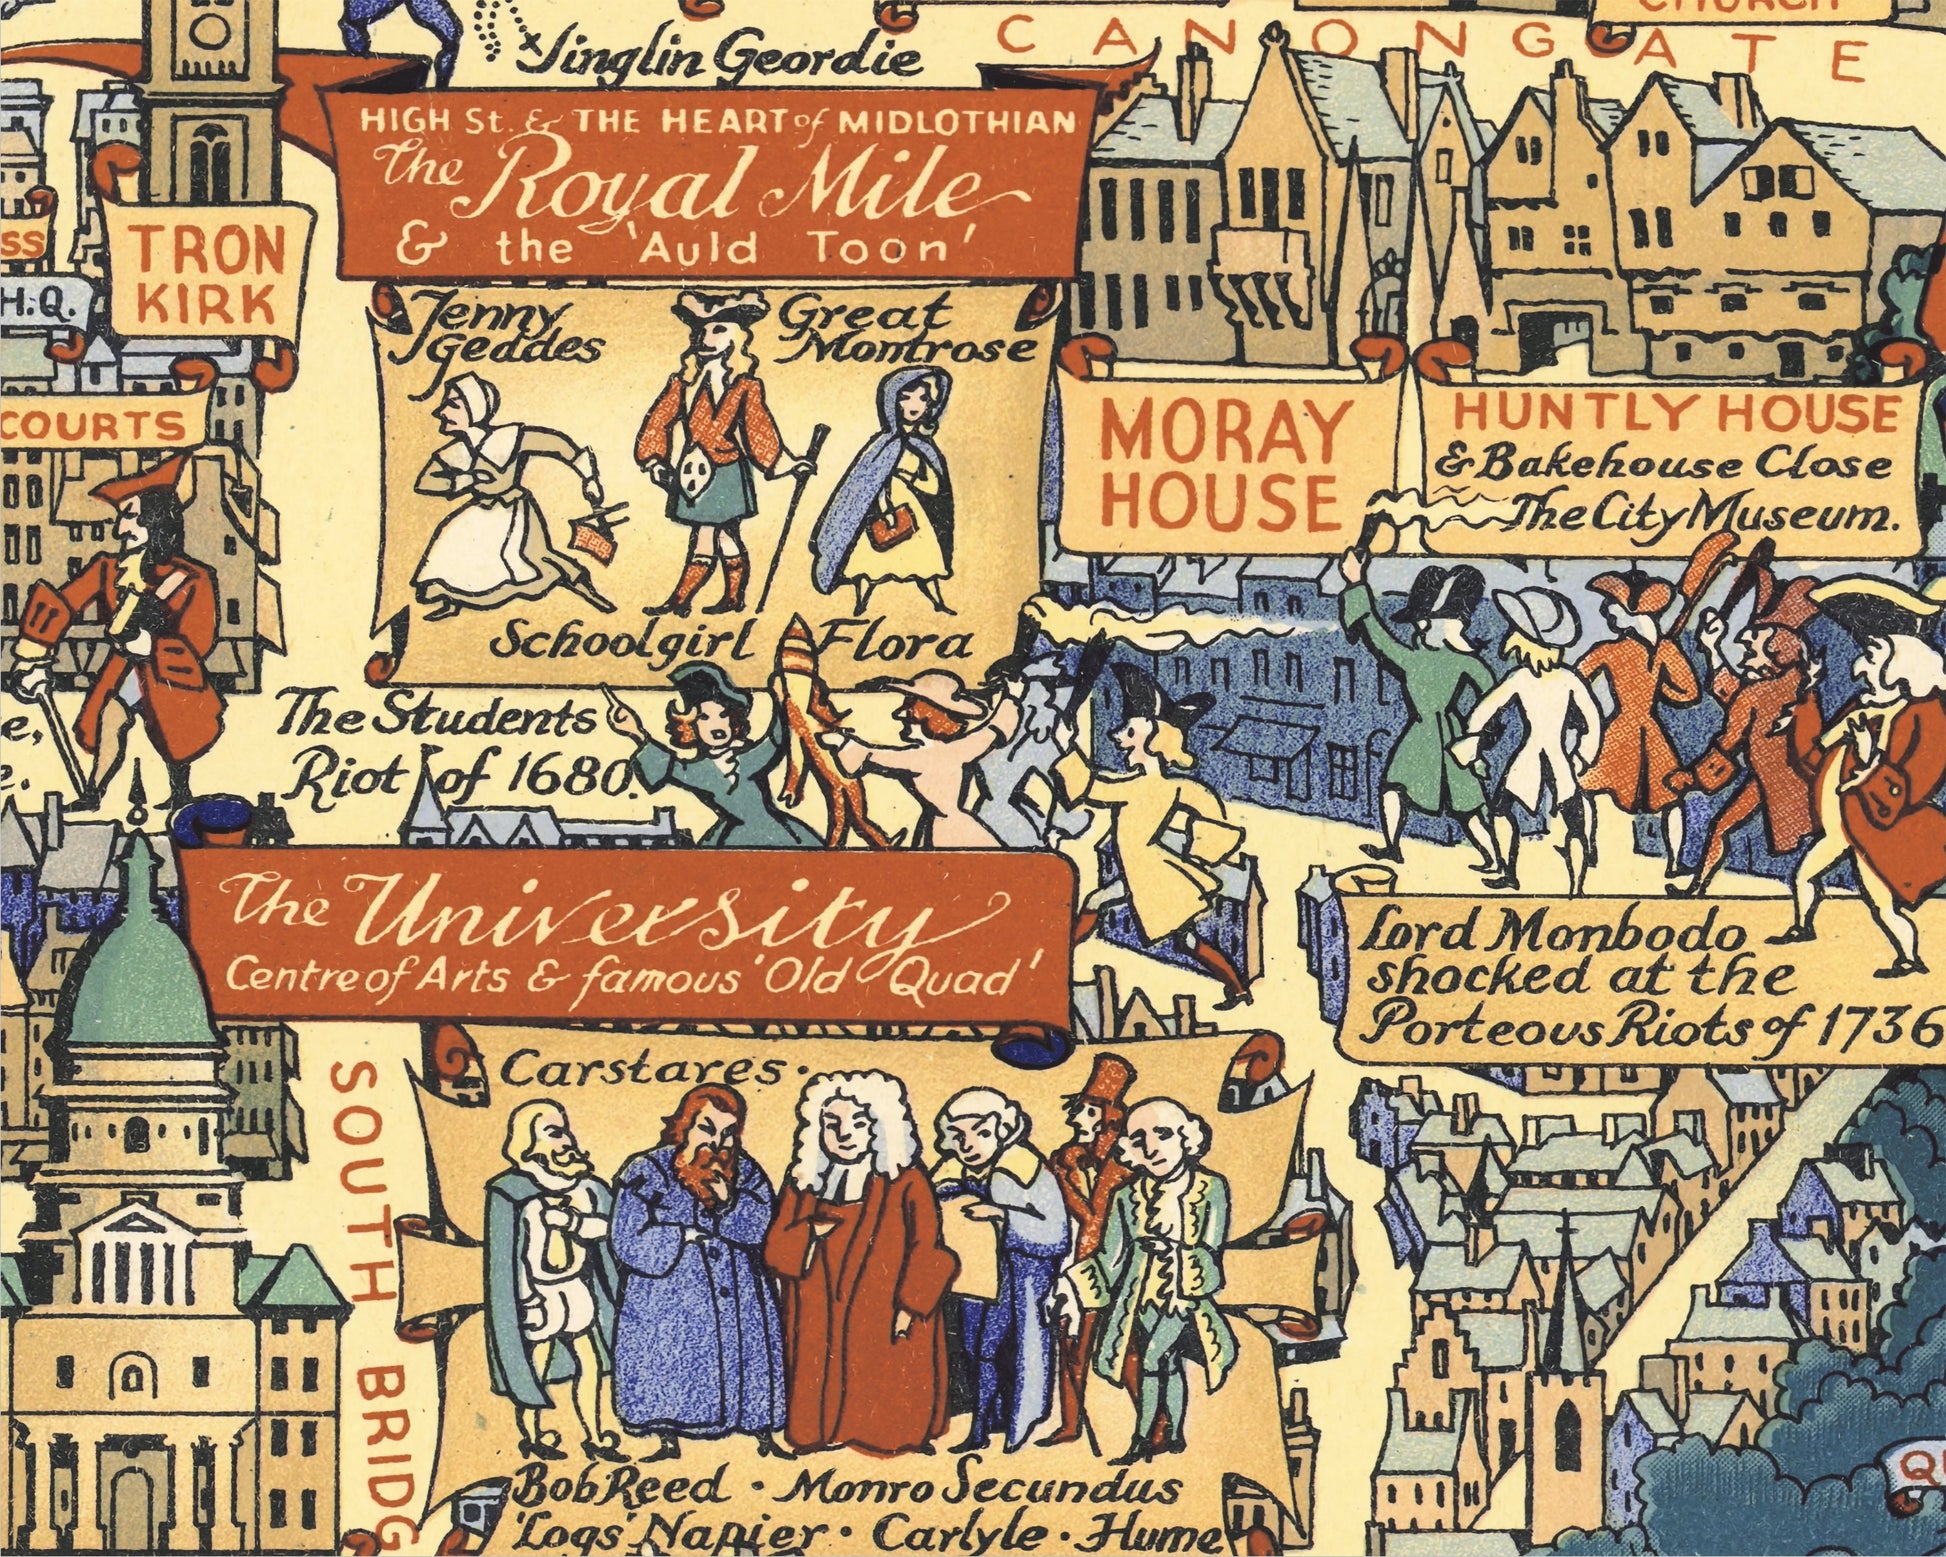 CHURCH
CANONGATE
Jinglin Geordie
HIGH St. & THE HEART of MIDLOTHIAN
The Royal Mile
& the 'Auld Toon'
TRON
KIRK
SS
H.Q.
COURTS
Jenny
Geddes
Great
Montrose
Schoolgirl Flora
MORAY
HOUSE
HUNTLY HOUSE
& Bakehouse Close
The City Museum.
e,
e.
The Students
Riot of 1680.
The University
Centre of Arts & famous 'Old Quad'
Lord Monbodo
shocked at the
Porteous Riots of 1736
SOUTH BRIDG
Carstares ·
Bob Reed · Monro Secundus
'Logs' Napier · Carlyle · Hume
QU